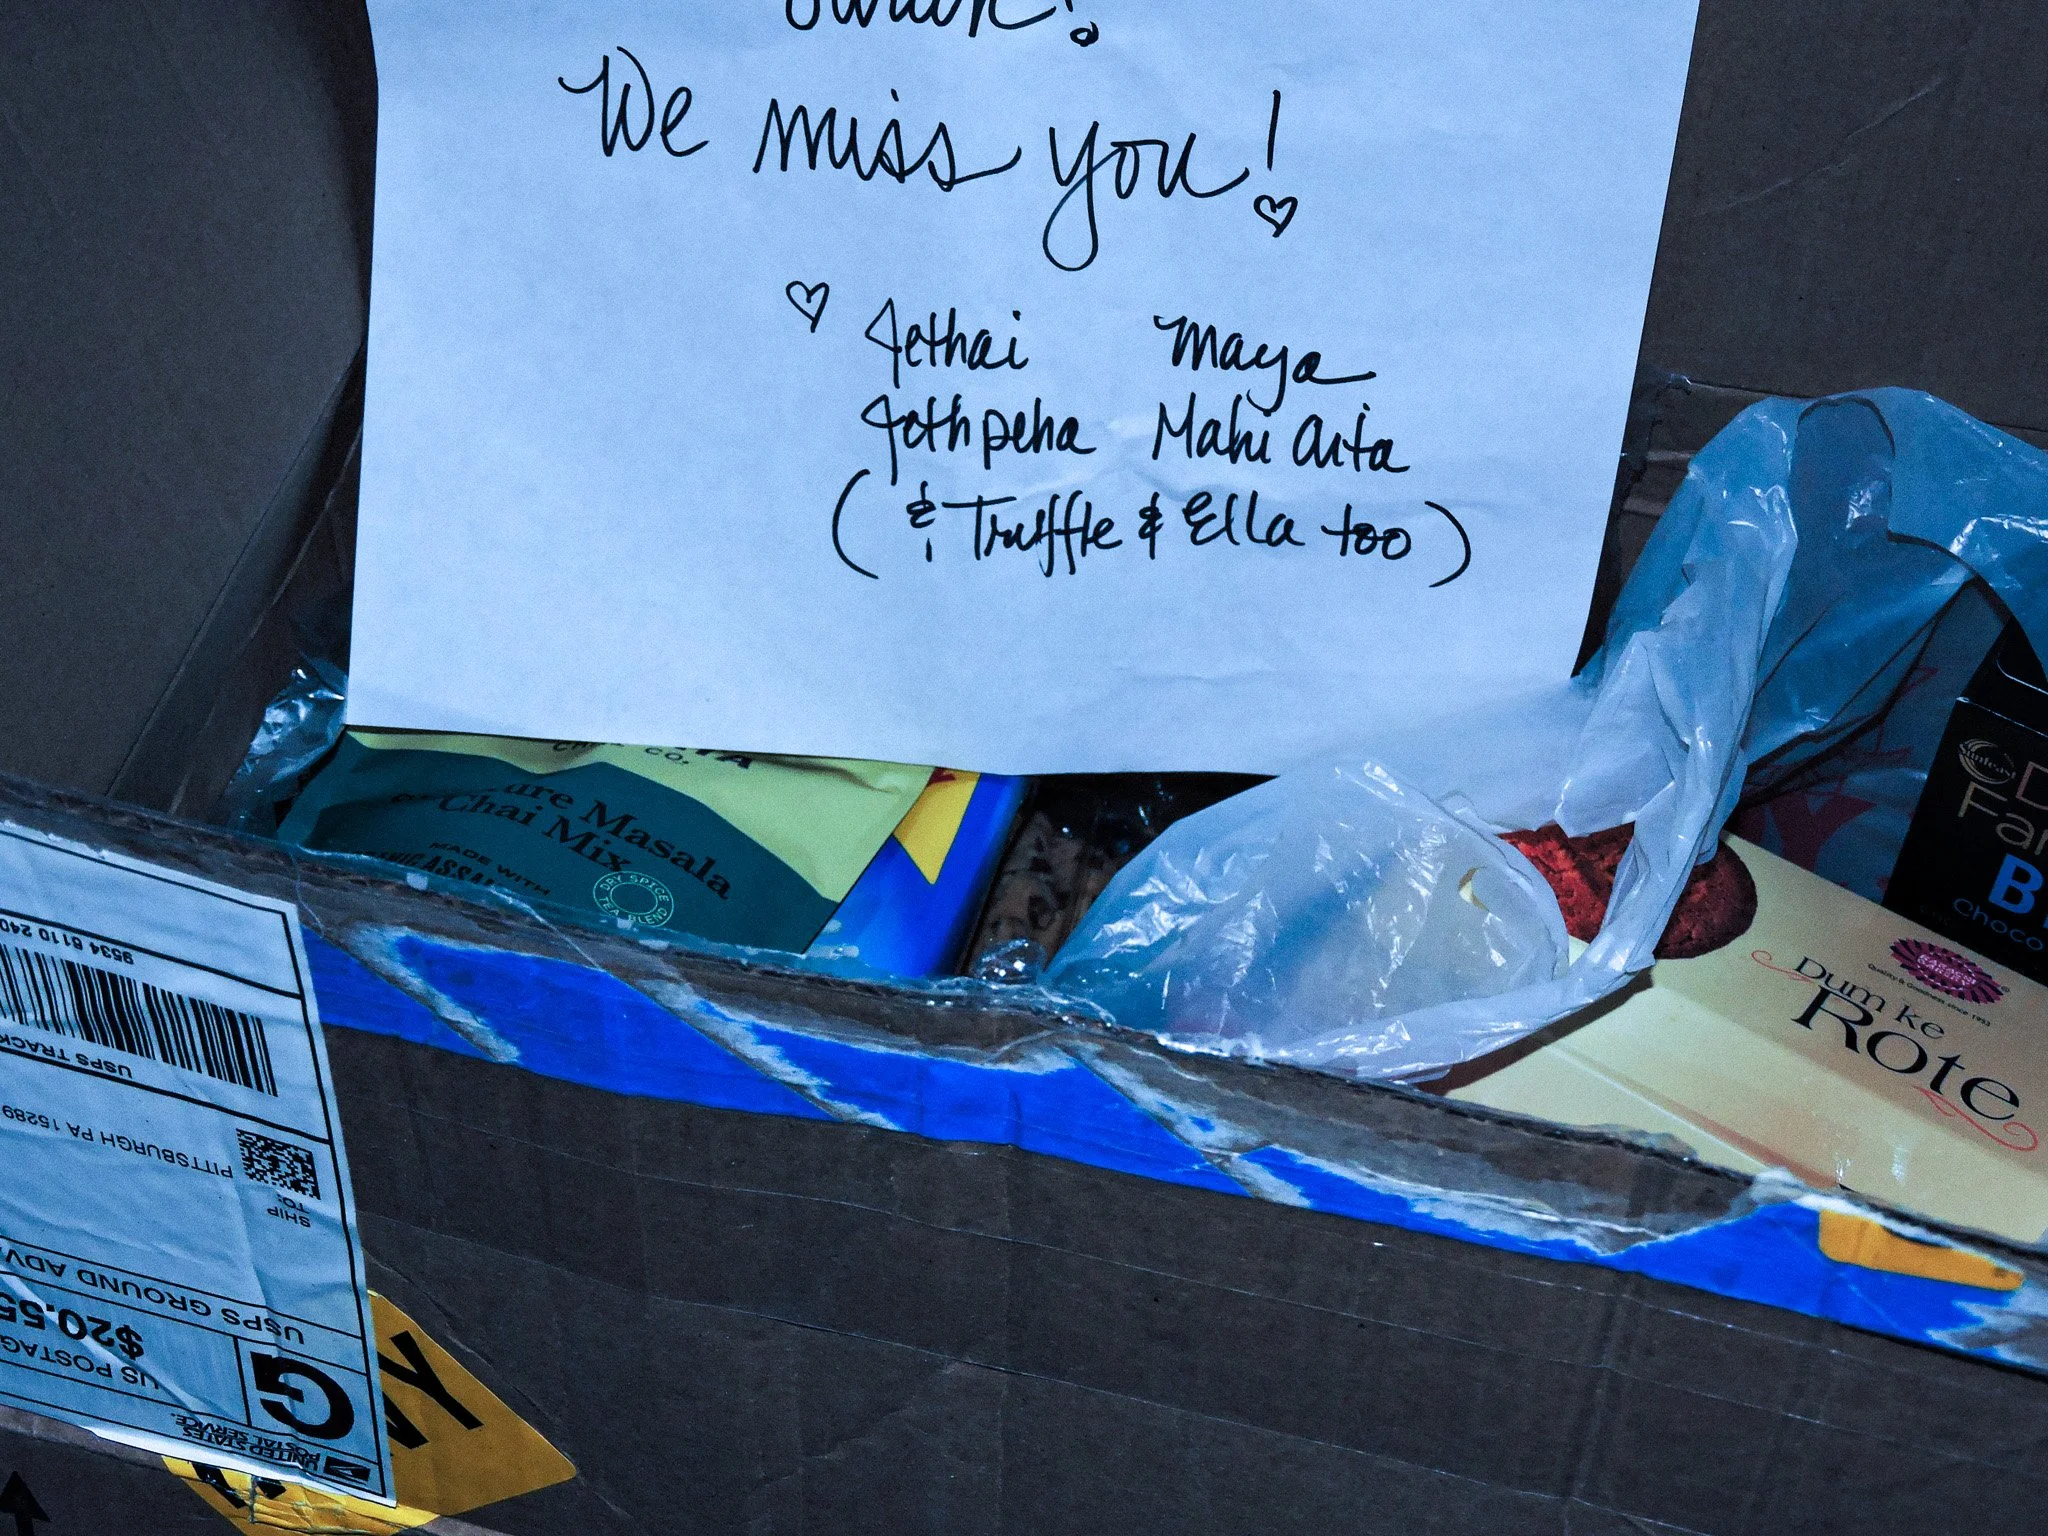 We miss you!
Jethai Maya
Jethpeha Mahi Aita
( & Truffle & Ella too )
CO.
Pure Masala
Chai Mix
MADE WITH
DRY SPICE
TEA BLEND
Quality & Goodness since 1953
Dum Ke
Rote
Sunfeast
D
Fan
B
choco
9534 6110 240
USPS TRACK
PITTSBURGH PA 15289
SHIP
TO:
USPS GROUND ADV
$20.55
US POSTAG
G
UNITED STATES
POSTAL SERVICE.